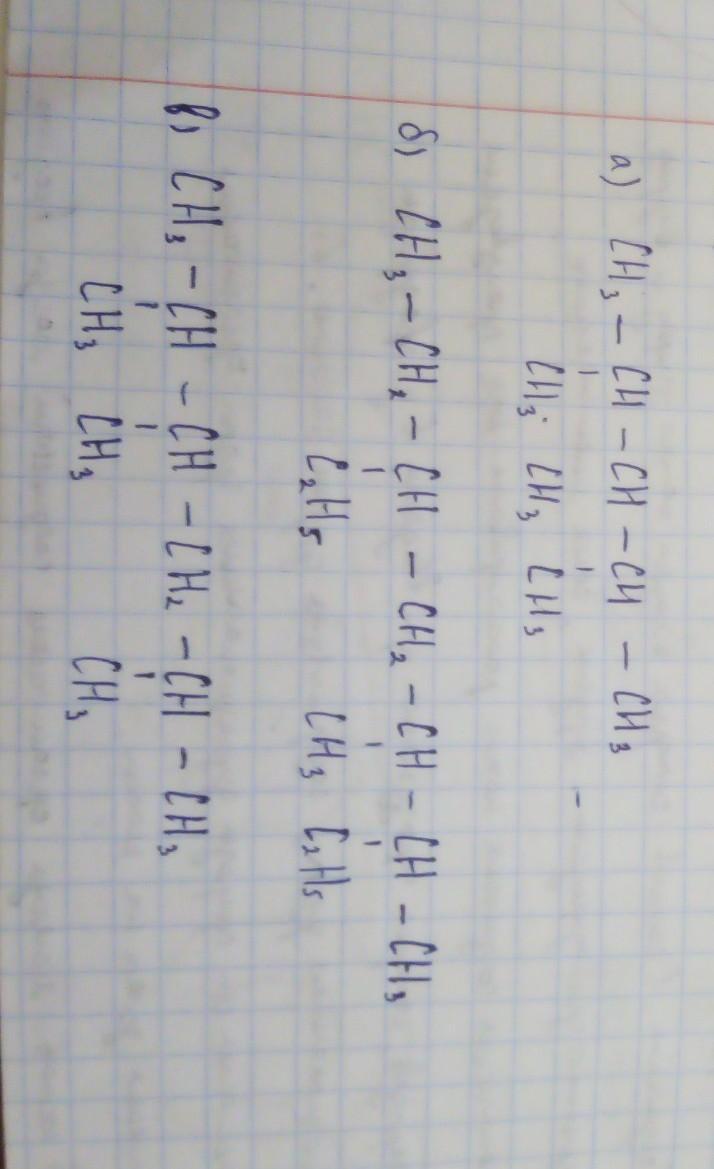 а) CH3 – CH – CH – CH – CH3
CH3 CH3 CH3
б) CH3 – CH2 – CH – CH2 – CH – CH – CH3
C2H5 CH3 C2H5
в) CH3 – CH – CH – CH2 – CH – CH3
CH3 CH3 CH3